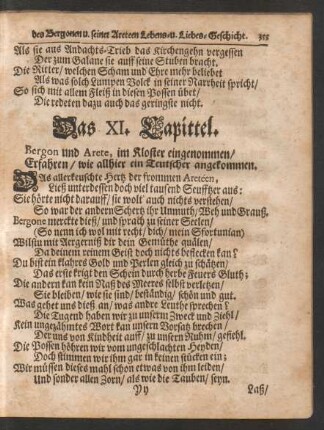 des Bergonen u. seiner Areteen Lebens- u. Liebes-Geschicht. 353
Als sie aus Andachts-Trieb das Kirchengehn vergessen
Der zum Galane sie auff seine Stuben bracht.
Die Ritter/ welchen Scham und Ehre mehr beliebet
Als was solch Lumpen Volck in seiner Narrheit spricht/
So sich mit allem Fleiß in diesen Possen übet/
Die redeten dazu auch das geringste nicht.
Das XI. Capittel.
Bergon und Arete, im Kloster eingenommen/
Erfahren/ wie allhier ein Teutscher angekommen.
Das allerkeuschte Hertz der frommen Areteen,
Ließ unterdessen doch viel tausend Seufftzer aus:
Sie hörte nicht darauff/ sie wolt' auch nichts verstehen/
So war der andern Schertz ihr Unmuth/ Weh und Grauß.
Bergone merckte diß/ und sprach zu seiner Seelen/
(So nenn ich wol mit recht/ dich/ mein Sfortunian)
Wilstu mit Aergerniß dir dein Gemüthe quälen/
Da deinem reinem Geist doch nichts beflecken kan?
Du bist ein klahres Gold und Perlen gleich zu schätzen/
Das erste krigt den Schein durch herbe Feuers Gluth;
Die andern kan kein Naß des Meeres selbst verletzen/
Sie bleiben/ wie sie sind/ beständig/ schön und gut.
Was gehet uns diß an/ was andre Leuthe sprechen?
Die Tugend haben wir zu unserm Zweck und Ziehl/
Kein ungezähmtes Wort kan unsern Vorsatz brechen/
Der uns von Kindheit auff/ zu unserm Ruhm/ gefiehl.
Die Possen hören wir vom ungeschlachten Heyden/
Doch stimmen wir ihm gar in keinen stücken ein;
Wir müssen dieses mahl schon etwas von ihm leiden/
Und sonder allen Zorn/ als wie die Tauben/ seyn.
Yy Laß/